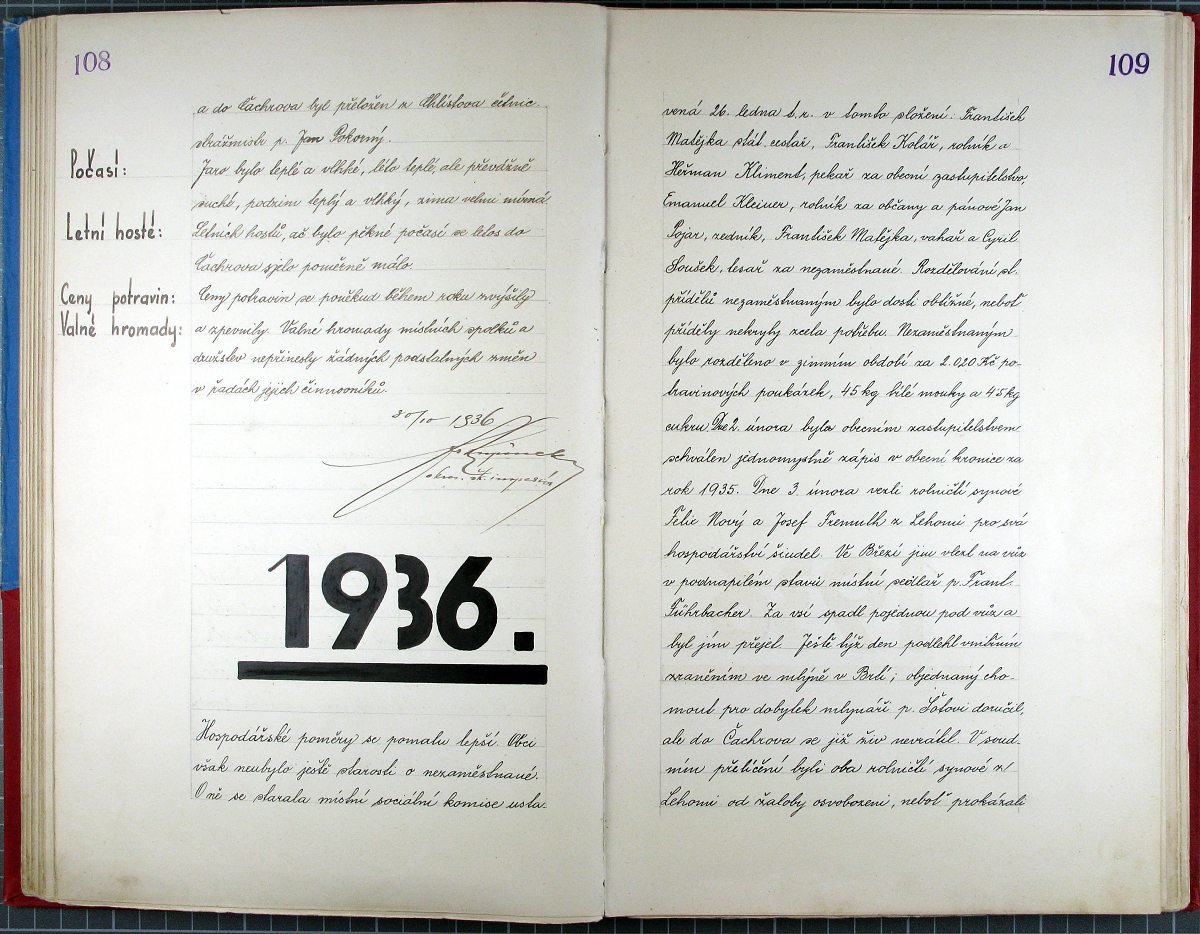 108
a do Čachrova byl přeložen z Chlistova četnic.
strážmistr p. Jan Pokorný.
Počasí:
Jaro bylo teplé a vlhké, léto teplé, ale převážně
suché, podzim teplý a vlhký, zima velmi mírná.
Letní hosté:
Letních hostů, ač bylo pěkné počasí se letos do
Čachrova sjelo poměrně málo.
Ceny potravin:
Ceny potravin se poněkud během roku zvýšily
Valné hromady:
a zpevnily. Valné hromady místních spolků a
družstev nepřinesly žádných podstatných změn
v řadách jejich činnovníků.
30/IV 1936
1936.
Hospodářské poměry se pomalu lepší. Obci
však neubylo ještě starosti o nezaměstnané.
O ně se starala místní sociální komise usta-
109
vená 26. ledna t. r. v tomto složení: František
Matějka stát. cestář, František Kolář, rolník a
Heřman Kliment, pekař za obecní zastupitelstvo,
Emanuel Kleiner, rolník za občany a pánové Jan
Pojar, zedník, František Matějka, vahař a Cyril
Soušek, tesař za nezaměstnané. Rozdělování st.
přídělů nezaměstnaným bylo dosti obtížné, neboť
příděly nekryly zcela potřebu. Nezaměstnaným
bylo rozděleno v zimním období za 2.020 Kč po-
travinových poukázek, 45 kg bílé mouky a 45 kg
cukru. Dne 2. února byla obecním zastupitelstvem
schválen jednomyslně zápis v obecní kronice za
rok 1935. Dne 3. února vezli rolničtí synové
Felix Nový a Josef Tremulh z Lehomi pro svá
hospodářství šindel. Ve Březí jim vlezl na vůz
v podnapilém stavu místní sedlář p. Frant.
Führbacher. Za vsí spadl pojednou pod vůz a
byl jím přejet. Ještě týž den podlehl vnitřním
zraněním ve mlýně v Brtí; objednaný cho-
mout pro dobytek mlynáři p. Šotovi doručil,
ale do Čachrova se již živ nevrátil. V soud-
ním přelíčení byli oba rolničtí synové z
Lehomi od žaloby osvobozeni, neboť prokázali